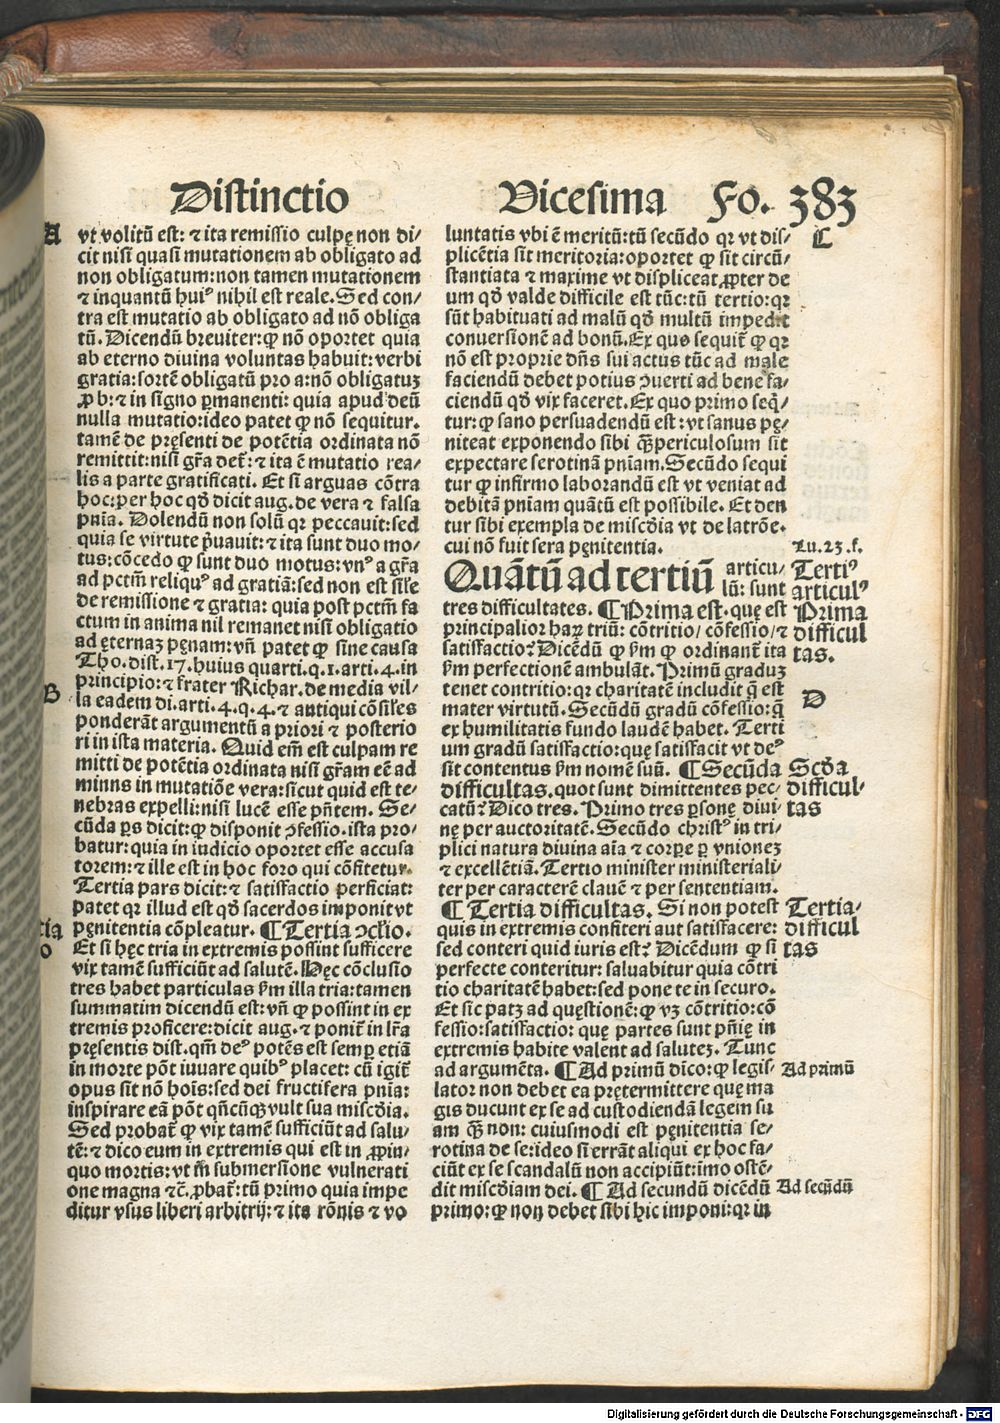 Distinctio Vicesima Fo. 383
A
vt volitū est: ⁊ ita remissio culpę non di/
cit nisi quasi mutationem ab obligato ad
non obligatum: non tamen mutationem
⁊ inquantū huiꝰ nihil est reale. Sed con/
tra est mutatio ab obligato ad nō obliga
tū. Dicendū breuiter: ꝙ nō oportet quia
ab eterno diuina voluntas habuit: verbi
gratia: sortē obligatū pro a: nō obligatuꝫ
ꝓ b: ⁊ in signo ꝑmanenti: quia apud deū
nulla mutatio: ideo patet ꝙ nō sequitur.
tamē de pręsenti de potētia ordinata nō
remittit: nisi gr̄a det̄: ⁊ ita ē mutatio rea/
lis a parte gratificati. Et si arguas cōtra
hoc: per hoc qd̄ dicit aug. de vera ⁊ falsa
pn̄ia. Dolendū non solū qꝛ peccauit: sed
quia se virtute p̄uauit: ⁊ ita sunt duo mo/
tus: cōcedo ꝙ sunt duo motus: vnꝰ a gr̄a
ad pctm̄ reliquꝰ ad gratiā: sed non est sil̄e
de remissione ⁊ gratia: quia post pctm̄ fa
ctum in anima nil remanet nisi obligatio
ad ęternaꝫ pęnam: vn̄ patet ꝙ sine causa
Tho. dist. 17. huius quarti. q. 1. arti. 4. in
principio: ⁊ frater Richar. de media vil/
B
la eadem di. arti. 4. q. 4. ⁊ antiqui cōsil̄es
ponderāt argumentū a priori ⁊ posterio
ri in ista materia. Quid em̄ est culpam re
mitti de potētia ordinata nisi gr̄am eē ad
minus in mutatiōe vera: sicut quid est te/
nebras expelli: nisi lucē esse pn̄tem. Se/
cūda ꝑs dicit: ꝙ disponit ꝯfessio. ista pro/
batur: quia in iudicio oportet esse accusa
torem: ⁊ ille est in hoc foro qui cōfitetur.
Tertia pars dicit: ⁊ satisfactio perficiat:
patet qꝛ illud est qd̄ sacerdos imponit vt
pęnitentia cōpleatur. ¶ Tertia ꝯclio.
tia
o
Et si hęc tria in extremis possint sufficere
vix tamē sufficiūt ad salutē. Hęc cōclusio
tres habet particulas ẜm illa tria: tamen
summatim dicendū est: vn̄ ꝙ possint in ex
tremis proficere: dicit aug. ⁊ ponit̄ in lr̄a
pręsentis dist. qm̄ deꝰ potēs est semꝑ etiā
in morte pōt iuuare quibꝰ placet: cū igit̄
opus sit nō hoīs: sed dei fructifera pn̄ia:
inspirare eā pōt qn̄cūqꝫ vult sua misc̄dia.
Sed probat̄ ꝙ vix tamē sufficiūt ad salu/
tē: ⁊ dico eum in extremis qui est in ꝓpin/
quo mortis: vt in submersione vulnerati
one magna ⁊c̄. ꝓbat̄: tū primo quia impe
ditur vsus liberi arbitrij: ⁊ ita rōnis ⁊ vo
luntatis vbi ē meritū: tū secūdo qꝛ vt dis/
C
plicētia sit meritoria: oportet ꝙ sit circū/
stantiata ⁊ maxime vt displiceat ꝓpter de
um qd̄ valde difficile est tūc: tū tertio: qꝛ
sūt habituati ad malū qd̄ multū impedit
conuersionē ad bonū. Ex quo sequit̄ ꝙ qꝛ
nō est proprie dn̄s sui actus tūc ad male
faciendū debet potius ꝯuerti ad bene fa/
ciendū qd̄ vix faceret. Ex quo primo seq̄/
tur: ꝙ sano persuadendū est: vt sanus pę/
niteat exponendo sibi q̄ꝫ periculosum sit
expectare serotinā pn̄iam. Secūdo sequi
tur ꝙ infirmo laborandū est vt veniat ad
debitā pn̄iam quātū est possibile. Et den
tur sibi exempla de misc̄dia vt de latrōe.
cui nō fuit sera pęnitentia.
Lu. 23. f.
Quātū ad tertiū articu/
lū: sunt
Tertiꝰ
articulꝰ
tres difficultates. ¶ Prima est. quę est
Prima
difficul
tas.
principalior haꝝ triū: cōtritio/ cōfessio/ ⁊
satisfactio? Dicēdū ꝙ ẜm ꝙ ordinant̄ ita
ẜm perfectionē ambulāt. Primū graduꝫ
tenet contritio: qꝛ charitatē includit q̄ est
D
mater virtutū. Secūdū gradū cōfessio: q̄
ex humilitatis fundo laudē habet. Terti
um gradū satisfactio: quę satisfacit vt deꝰ
sit contentus ẜm nomē suū. ¶ Secūda
Scd̄a
difficul-
tas
difficultas. quot sunt dimittentes pec/
catū? Dico tres. Primo tres ꝑsonę diui/
nę per auctoritatē. Secūdo christꝰ in tri/
plici natura diuina aīa ⁊ corꝑe ꝑ vnioneꝫ
⁊ excellētiā. Tertio minister ministeriali/
ter per caracterē clauē ⁊ per sententiam.
¶ Tertia difficultas. Si non potest
Tertia-
difficul
tas
quis in extremis confiteri aut satisfacere:
sed conteri quid iuris est? Dicēdum ꝙ si
perfecte conteritur: saluabitur quia cōtri
tio charitatē habet: sed pone te in securo.
Et sic patꝫ ad quęstionē: ꝙ vꝫ cōtritio: cō
fessio: satisfactio: quę partes sunt pn̄ię in
extremis habite valent ad saluteꝫ. Tunc
ad argumēta. ¶ Ad primū dico: ꝙ legis/
Ad primū
lator non debet ea prętermittere quę ma
gis ducunt ex se ad custodiendā legem su
am q̄ꝫ non: cuiusmodi est pęnitentia se/
rotina de se: ideo si errāt aliqui ex hoc fa/
ciūt ex se scandalū non accipiūt: imo ostē/
dit misc̄diam dei. ¶ Ad secundū dicēdū
Ad secūdū
primo: ꝙ non debet sibi hic imponi: qꝛ in
Digitalisierung gefördert durch die Deutsche Forschungsgemeinschaft - DFG